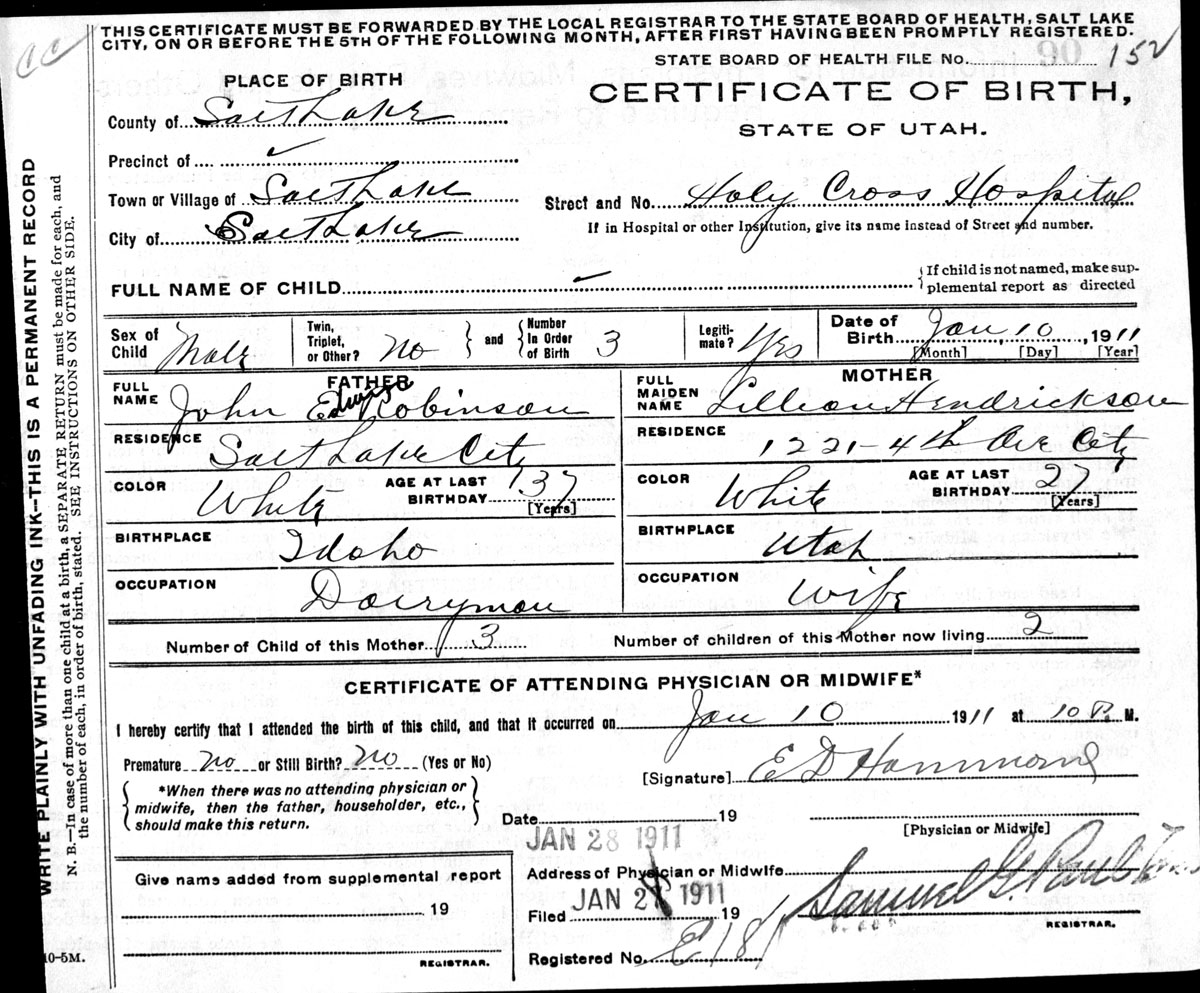 CC
THIS CERTIFICATE MUST BE FORWARDED BY THE LOCAL REGISTRAR TO THE STATE BOARD OF HEALTH, SALT LAKE
CITY, ON OR BEFORE THE 5TH OF THE FOLLOWING MONTH, AFTER FIRST HAVING BEEN PROMPTLY REGISTERED.
STATE BOARD OF HEALTH FILE No. 152
CERTIFICATE OF BIRTH,
STATE OF UTAH.
PLACE OF BIRTH
County of Salt Lake
Precinct of ✓
Town or Village of Salt Lake
City of Salt Lake
Street and No. Holy Cross Hospital
If in Hospital or other Institution, give its name instead of Street and number.
FULL NAME OF CHILD ✓ {If child is not named, make sup-
plemental report as directed
Sex of Child Male
Twin, Triplet, or Other? No } and { Number In Order of Birth 3
Legiti-mate? Yes
Date of Birth Jan 10, 1911
[Month] [Day] [Year]
FATHER
FULL NAME John Edwinga Robinson
RESIDENCE Salt Lake City
COLOR White AGE AT LAST BIRTHDAY 37 [Years]
BIRTHPLACE Idaho
OCCUPATION Dairyman
MOTHER
FULL MAIDEN NAME Lillian Hendrickson
RESIDENCE 1221-4th Ave City
COLOR White AGE AT LAST BIRTHDAY 27 [Years]
BIRTHPLACE Utah
OCCUPATION Wife
Number of Child of this Mother 3 Number of children of this Mother now living 2
CERTIFICATE OF ATTENDING PHYSICIAN OR MIDWIFE*
I hereby certify that I attended the birth of this child, and that it occurred on Jan 10 1911 at 10 P. M.
Premature No or Still Birth? No (Yes or No)
*When there was no attending physician or
midwife, then the father, householder, etc.,
should make this return.
[Signature] E D Hammond
Date 19
[Physician or Midwife]
JAN 28 1911
Address of Physician or Midwife
JAN 28 1911
Filed 19 Samuel G. Paul
REGISTRAR.
Registered No. E 181
Give name added from supplemental report
19
REGISTRAR.
10-5M.
WRITE PLAINLY WITH UNFADING INK—THIS IS A PERMANENT RECORD
N. B.—In case of more than one child at a birth, a SEPARATE RETURN must be made for each, and
the number of each, in order of birth, stated. SEE INSTRUCTIONS ON OTHER SIDE.